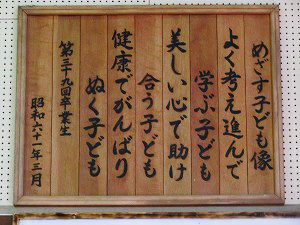 めざす子ども像
よく考え進んで
学ぶ子ども
美しい心で助け
合う子ども
健康でがんばり
ぬく子ども
第三十九回卒業生
昭和六十一年三月